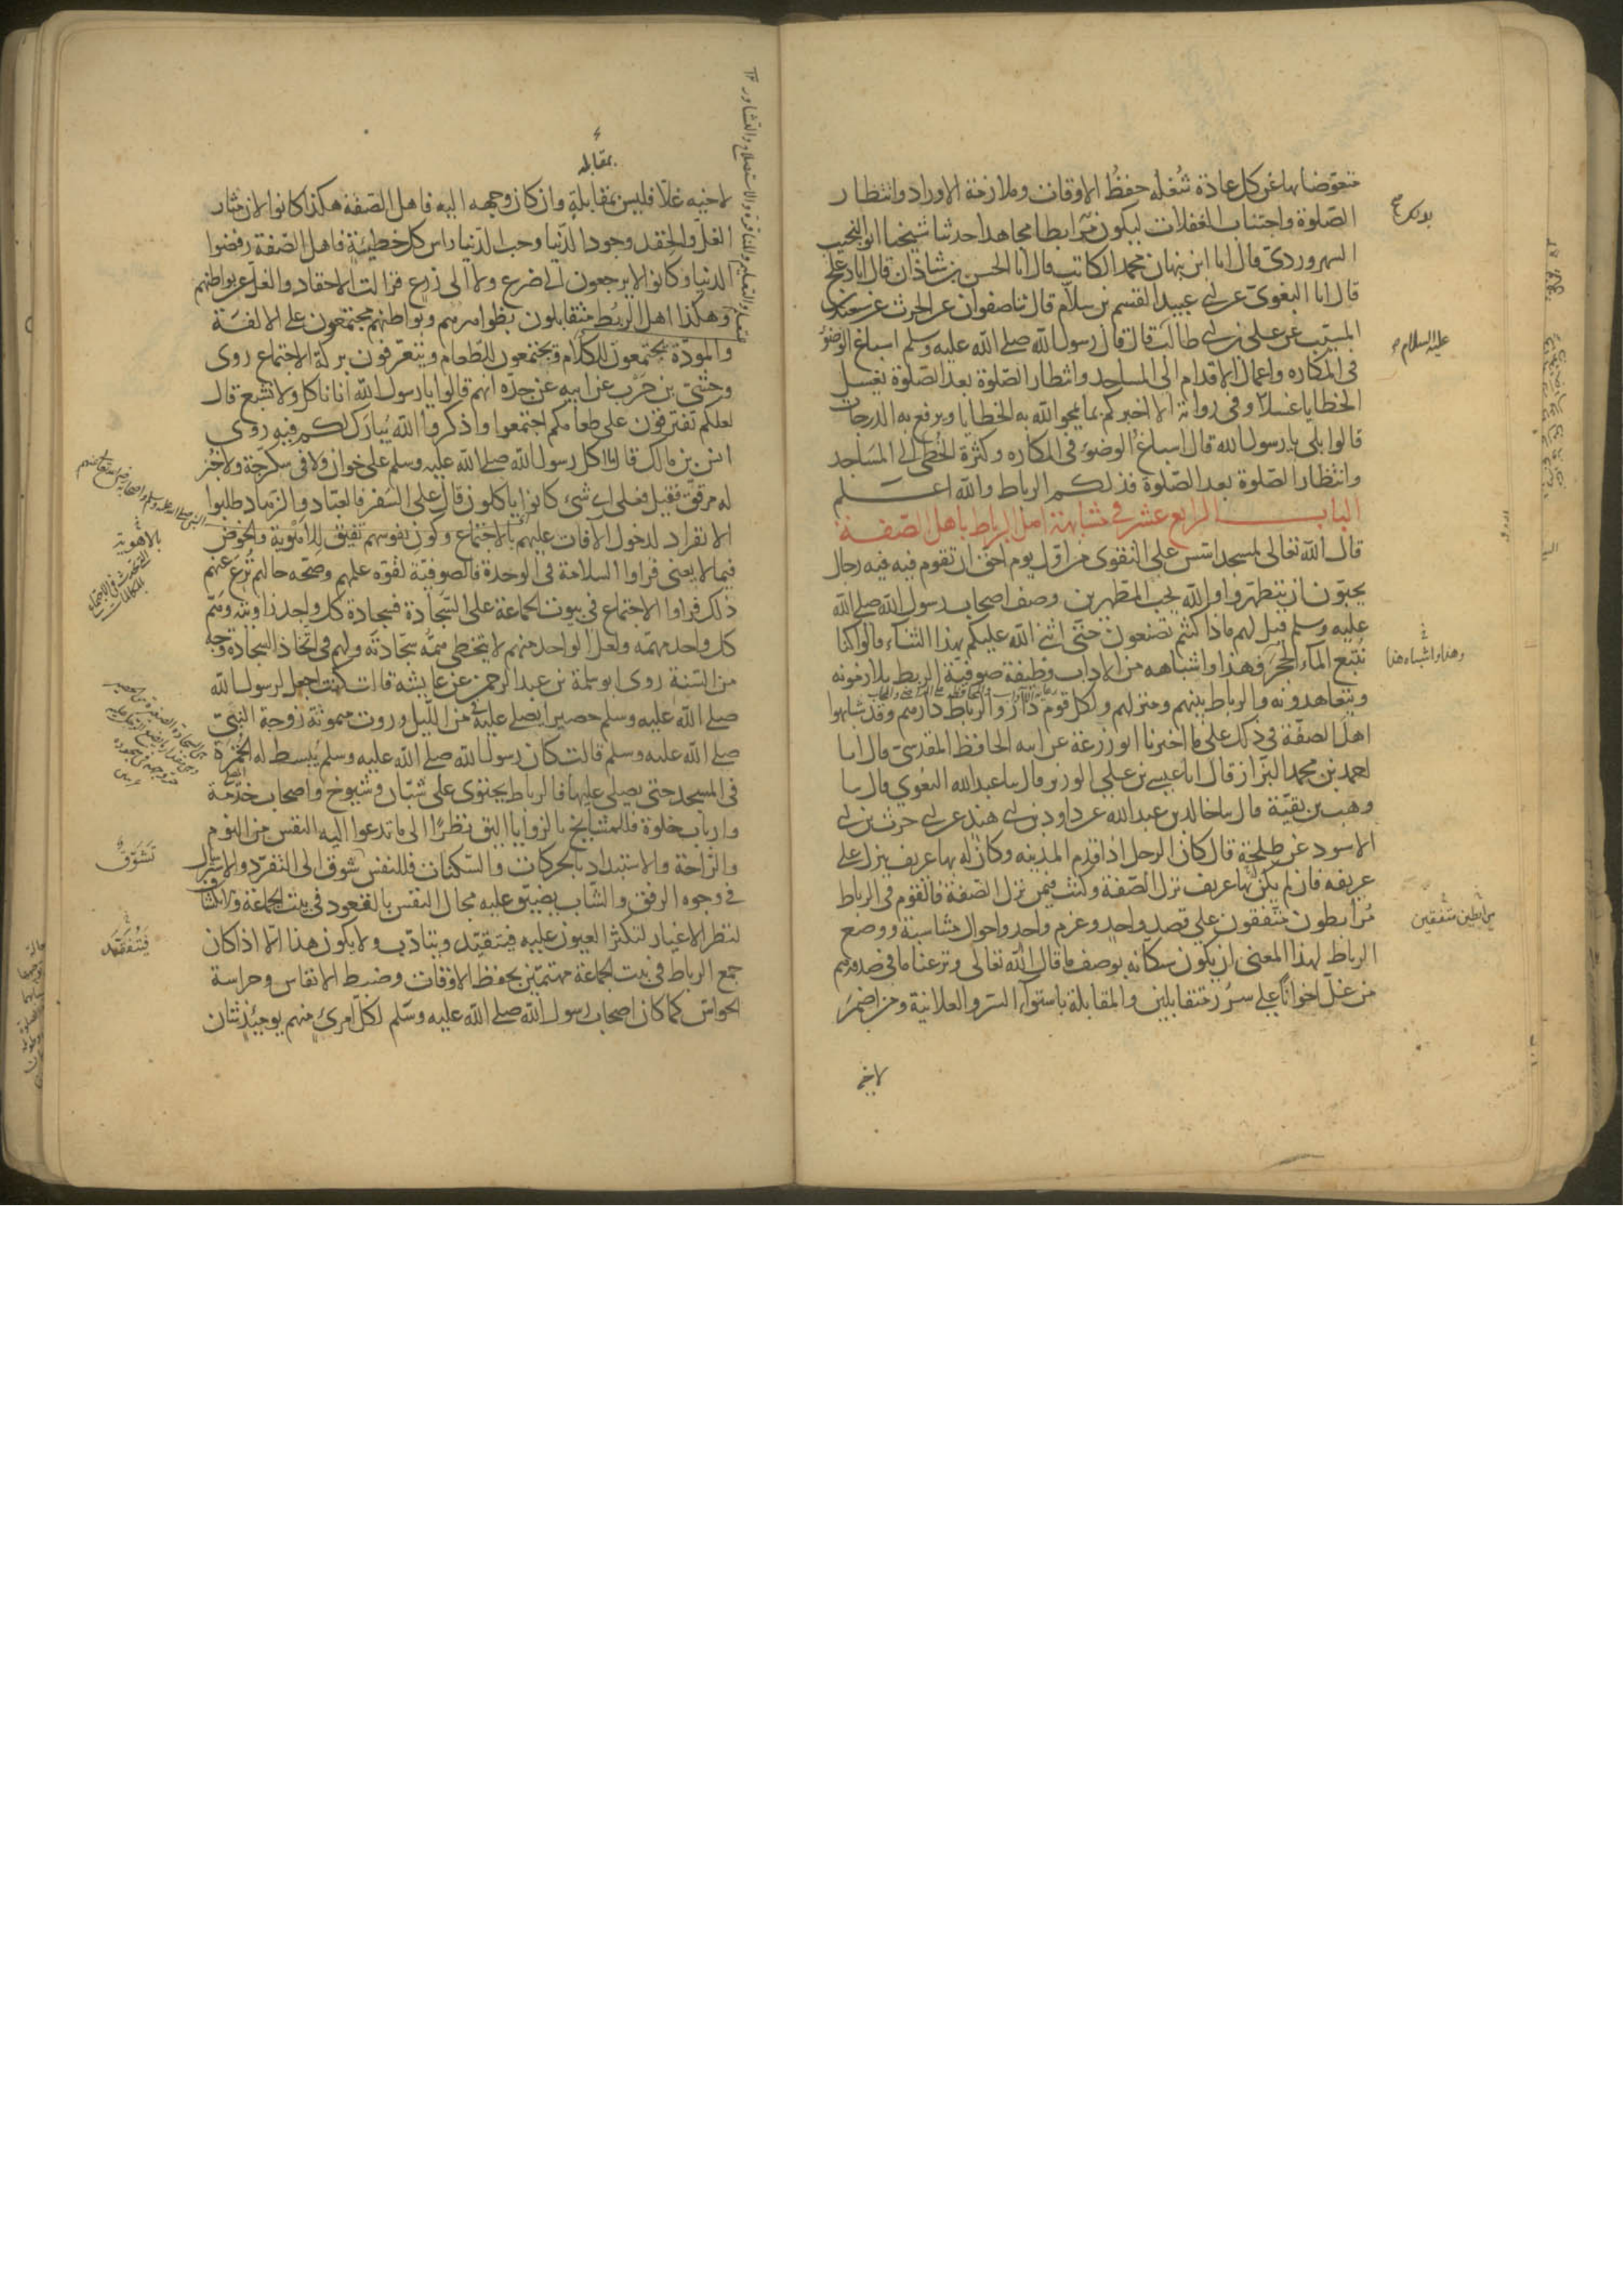 متعوضا بها عن كل عادة شغله حفظ الاوقات وملازمة الاوراد وانتظار
الصلوة واجتناب الغفلات ليكون مرابطا مجاهدا حدثنا شيخنا ابو النجيب
السهروردى قال انا ابن نبهان محمد الكاتب قال انا الحسن بن شاذان قال انا دعلج
قال انا البغوى عن ابى عبيد القسم بن سلام قال ثنا صفوان عن الحرث عن سعيد بن
المسيب عن على بن ابى طالب قال قال رسول الله صلى الله عليه وسلم اسباغ الوضوء
فى المكاره واعمال الاقدام الى المساجد وانتظار الصلوة بعد الصلوة يغسل
الخطايا غسلا وفى رواية الا اخبركم بما يمحوا الله به الخطايا ويرفع به الدرجات
قالوا بلى يا رسول الله قال اسباغ الوضوء فى المكاره وكثرة الخطى الى المساجد
وانتظار الصلوة بعد الصلوة فذلكم الرباط والله اعلم
الباب الرابع عشر فى مشابهة اهل الرباط باهل الصفة
قال الله تعالى لمسجد اسس على التقوى من اول يوم احق ان تقوم فيه فيه رجال
يحبون ان يتطهروا والله يحب المطهرين وصف اصحاب رسول الله صلى الله
عليه وسلم قيل لهم ماذا كنتم تصنعون حتى اثنى الله عليكم بهذا الثناء قالوا كنا
نتبع الماء الحجر فهذا واشباهه من الاداب وظيفة صوفية الربط يلازمونه
ويتعاهدونه والرباط بيتهم ومنزلهم ولكل قوم دار والرباط دارهم وقد شابهوا
اهل الصفة فى ذلك على ما اخبرنا ابو زرعة عن ابيه الحافظ المقدسى قال انا
احمد بن محمد البزاز قال انا عيسى بن على الوزير قال ثنا عبد الله البغوى قال ثنا
وهب بن بقية قال ثنا خالد بن عبد الله عن داود بن ابى هند عن ابى حرث بن ابى
الاسود عن طلحة قال كان الرجل اذا قدم المدينه وكان له بها عريف ينزل على
عريفه فان لم يكن له بها عريف نزل الصفة وكنت فيمن نزل الصفة فالقوم فى الرباط
مرابطون متفقون على قصد واحد وعزم واحد واحوال متناسبة ووضع
الرباط لهذا المعنى ان يكون سكانه بوصف ما قال الله تعالى ونزعنا ما فى صدورهم
من غل اخوانا على سرر متقابلين والمقابلة باستواء السر والعلانية ومن اضمر
لاخيه
عليه السلام
وهذا واشباه هذا
مرابطين متفقين
بمقابله
لاخيه غلا فليس بمقابلة وان كان وجهه اليه فاهل الصفة هكذا كانوا لان مثار
الغل والحقد وجود الدنيا وحب الدنيا راس كل خطيئة فاهل الصفة رفضوا
الدنيا وكانوا لا يرجعون الى ضرع ولا الى زرع فزالت الاحقاد والغل عن بواطنهم
وهكذا اهل الربط متقابلون بظواهرهم وبواطنهم مجتمعون على الالفة
والمودة يجتمعون للكلام ويجتمعون للطعام ويتعرفون بركة الاجتماع روى
وحشى بن حرب عن ابيه عن جده انهم قالوا يا رسول الله انا ناكل ولا نشبع قال
لعلكم تفترقون على طعامكم اجتمعوا واذكروا الله يبارك لكم فيه روى
انس بن مالك قال ما اكل رسول الله صلى الله عليه وسلم على خوان ولا فى سكرجة ولا خبز
له مرقق فقيل فعلى اى شىء كانوا ياكلون قال على السفر فالعباد والزهاد طلبوا
الانفراد لدخول الآفات عليهم بالاجتماع وكون نفوسهم تفتق للاهوية والخوض
فيما لا يعنى فراوا السلامة فى الوحدة فالصوفية لقوة علمهم وصحة حالهم نزع عنهم
ذلك فراوا الاجتماع فى بيوت الجماعة على السجادة فسجادة كل واحد زاويته وهم
كل واحد مهمه ولعل الواحد منهم لا يتخطى همه سجادته ولهم فى اتخاذ السجادة وجه
من السنة روى ابو سلمة بن عبد الرحمن عن عايشه قالت كنت اجعل لرسول الله
صلى الله عليه وسلم حصيرا يصلى عليه من الليل وروت ميمونة زوجة النبى
صلى الله عليه وسلم قالت كان رسول الله صلى الله عليه وسلم يبسط له الخمرة
فى المسجد حتى يصلى عليها فالرباط يحتوى على شبان وشيوخ واصحاب خدمة
وارباب خلوة فالمشايخ بالزوايا اليق نظرا الى ما تدعوا اليه النفس من النوم
والراحة والاستبداد بالحركات والسكنات فللنفس شوق الى التفرد والاسترسال
فى وجوه الرفق والشاب يضيق عليه مجال النفس بالقعود فى بيت الجماعة والانكشاف
لنظر الاغيار لتكثر العيون عليه فيتقيد ويتادب ولا يكون هذا الا اذا كان
جمع الرباط فى بيت الجماعة مهتمين بحفظ الاوقات وضبط الانفاس وحراسة
الحواس كما كان اصحاب رسول الله صلى الله عليه وسلم لكل امرئ منهم يومئذ شان
بالاهوية
تشوق